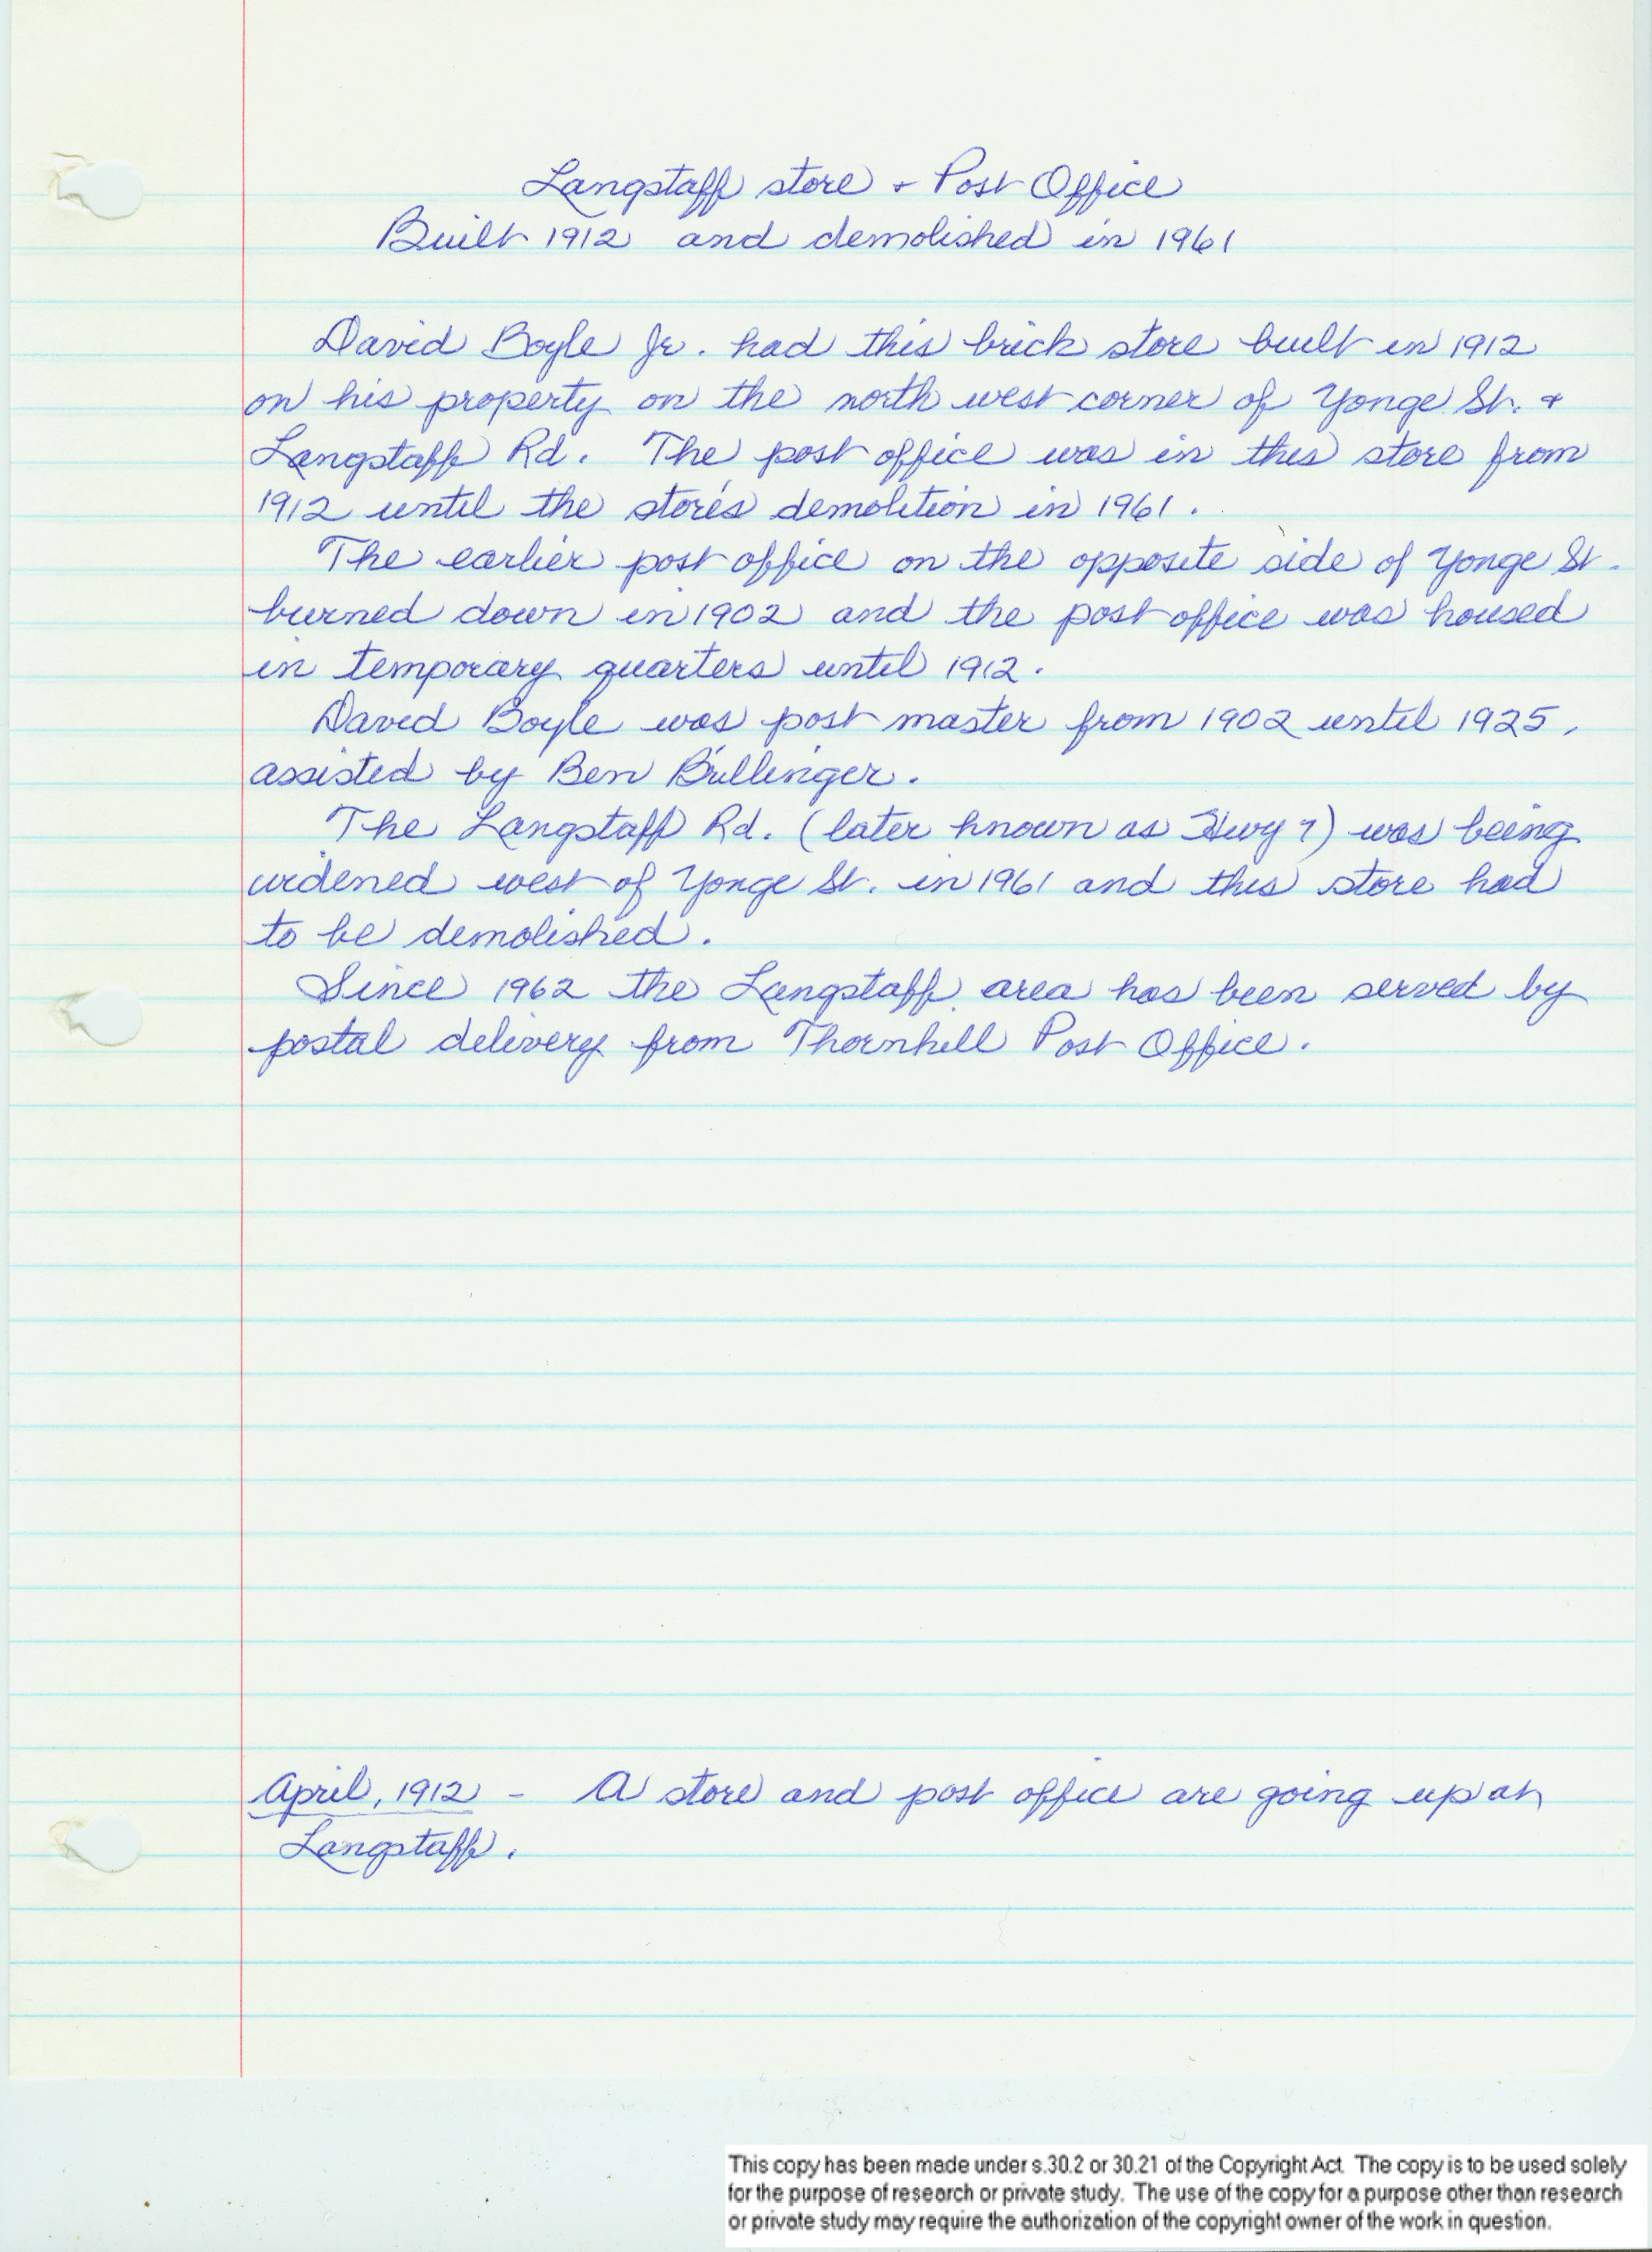 Langstaff store + Post Office
Built 1912 and demolished in 1961
David Boyle Jr. had this brick store built in 1912
on his property on the north west corner of Yonge St. +
Langstaff Rd. The post office was in this store from
1912 until the store's demolition in 1961.
The earlier post office on the opposite side of Yonge St.
burned down in 1902 and the post office was housed
in temporary quarters until 1912.
David Boyle was post master from 1902 until 1925,
assisted by Ben Bullinger.
The Langstaff Rd. (later known as Hwy 7) was being
widened west of Yonge St. in 1961 and this store had
to be demolished.
Since 1962 the Langstaff area has been served by
postal delivery from Thornhill Post Office.
April, 1912 - A store and post office are going up at
Langstaff.
This copy has been made under s.30.2 or 30.21 of the Copyright Act. The copy is to be used solely
for the purpose of research or private study. The use of the copy for a purpose other than research
or private study may require the authorization of the copyright owner of the work in question.